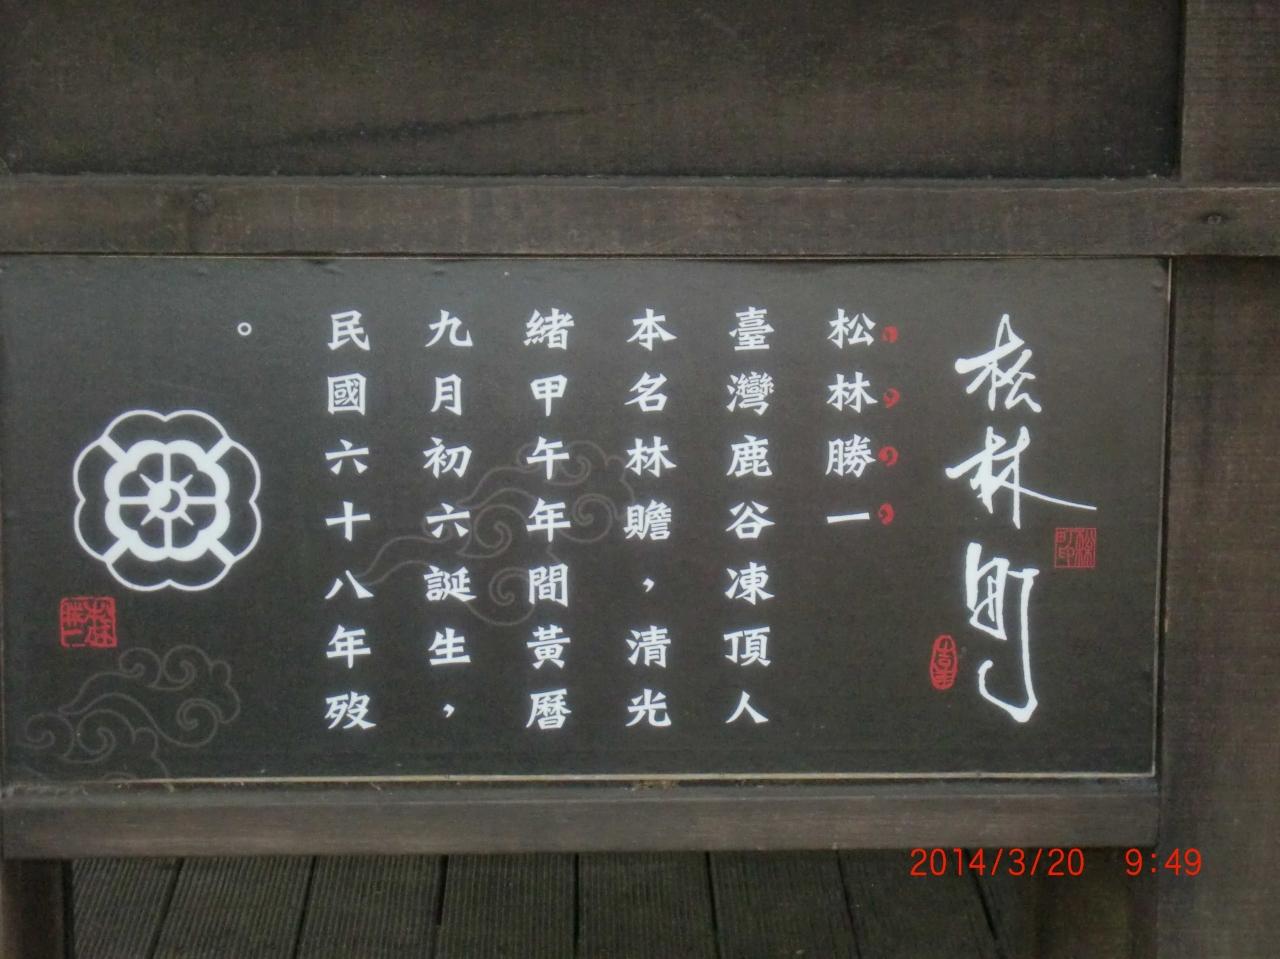 松林町
松林町印
松林勝一
臺灣鹿谷凍頂人
本名林贍，清光
緒甲午年間黃曆
九月初六誕生，
民國六十八年歿
。
2014/3/20 9:49